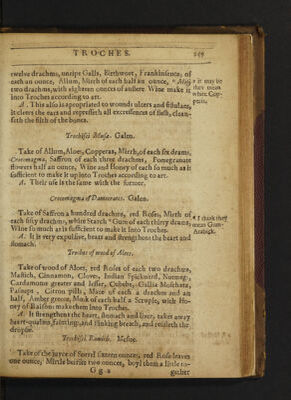 TROCHES. 249
twelve drachms, unripe Galls, Birthwort, Frankinsence, of
each an ounce, Allum, Mirrh of each half an ounce,
two drachms, with eighteen ounces of austere Wine make it
into Troches according to art.
* it may be
they mean
white Cop-
peras.
A. This also is apropriated to wounds ulcers and fistulaes,
it cleers the ears and represseth all excressences of flesh, clean-
seth the filth of the bones.
Trochisci Musæ. Galen.
Take of Allum, Aloes, Copperas, Mirrh, of each six drams,
Crocomagma, Saffron of each three drachms, Pomegranate
flowers half an ounce, Wine and Honey of each so much as is
sufficient to make it up into Troches according to art.
A. Their use is the same with the former.
Crocomagma of Damocrates. Galen.
Take of Saffron a hundred drachms, red Roses, Mirrh of
each fifty drachms, white Starch * Gum of each thirty drams,
Wine so much as is sufficient to make it into Troches.
* I think they
mean Gum-
Arabick.
A. It is very expulsive, heats and strengthens the heart and
stomach.
Troches of wood of Aloes.
Take of wood of Aloes, red Roses of each two drachms,
Mastich, Cinnamon, Cloves, Indian Spicknard, Nutmeg,
Cardamoms greater and lesser, Cubebs, Gallia Moschata,
Citron pills, Mace of each a drachm and an
half, Amber greece, Musk of each half a Scruple, with Ho-
ney of Raisons make them into Troches.
A. It strengthens the heart, stomach and liver, takes away
heart-qualms, faintings, and stinking breath, and resisteth the
dropsie.
Trochisci Ramich. Mesue.
Take of the juyce of Sorrel sixteen ounces, red Rose leaves
one ounce, Mirtle berries two ounces, boyl them a little to-
Gg 2 gether